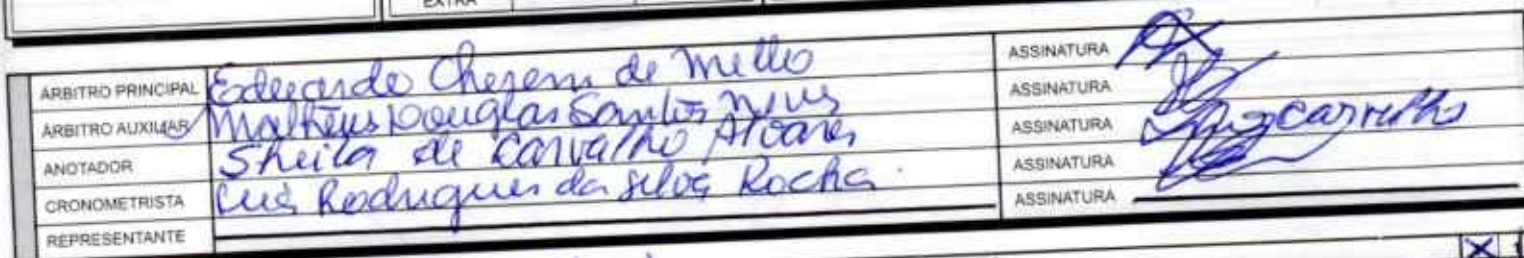 EXTRA
ÁRBITRO PRINCIPAL Eduardo Cherem de Mello ASSINATURA
ÁRBITRO AUXILIAR Matheus Douglas Santos Neves ASSINATURA
ANOTADOR Sheila de Carvalho Alvares ASSINATURA Carvalho
CRONOMETRISTA Luis Rodrigues da Silva Rocha ASSINATURA
REPRESENTANTE ASSINATURA